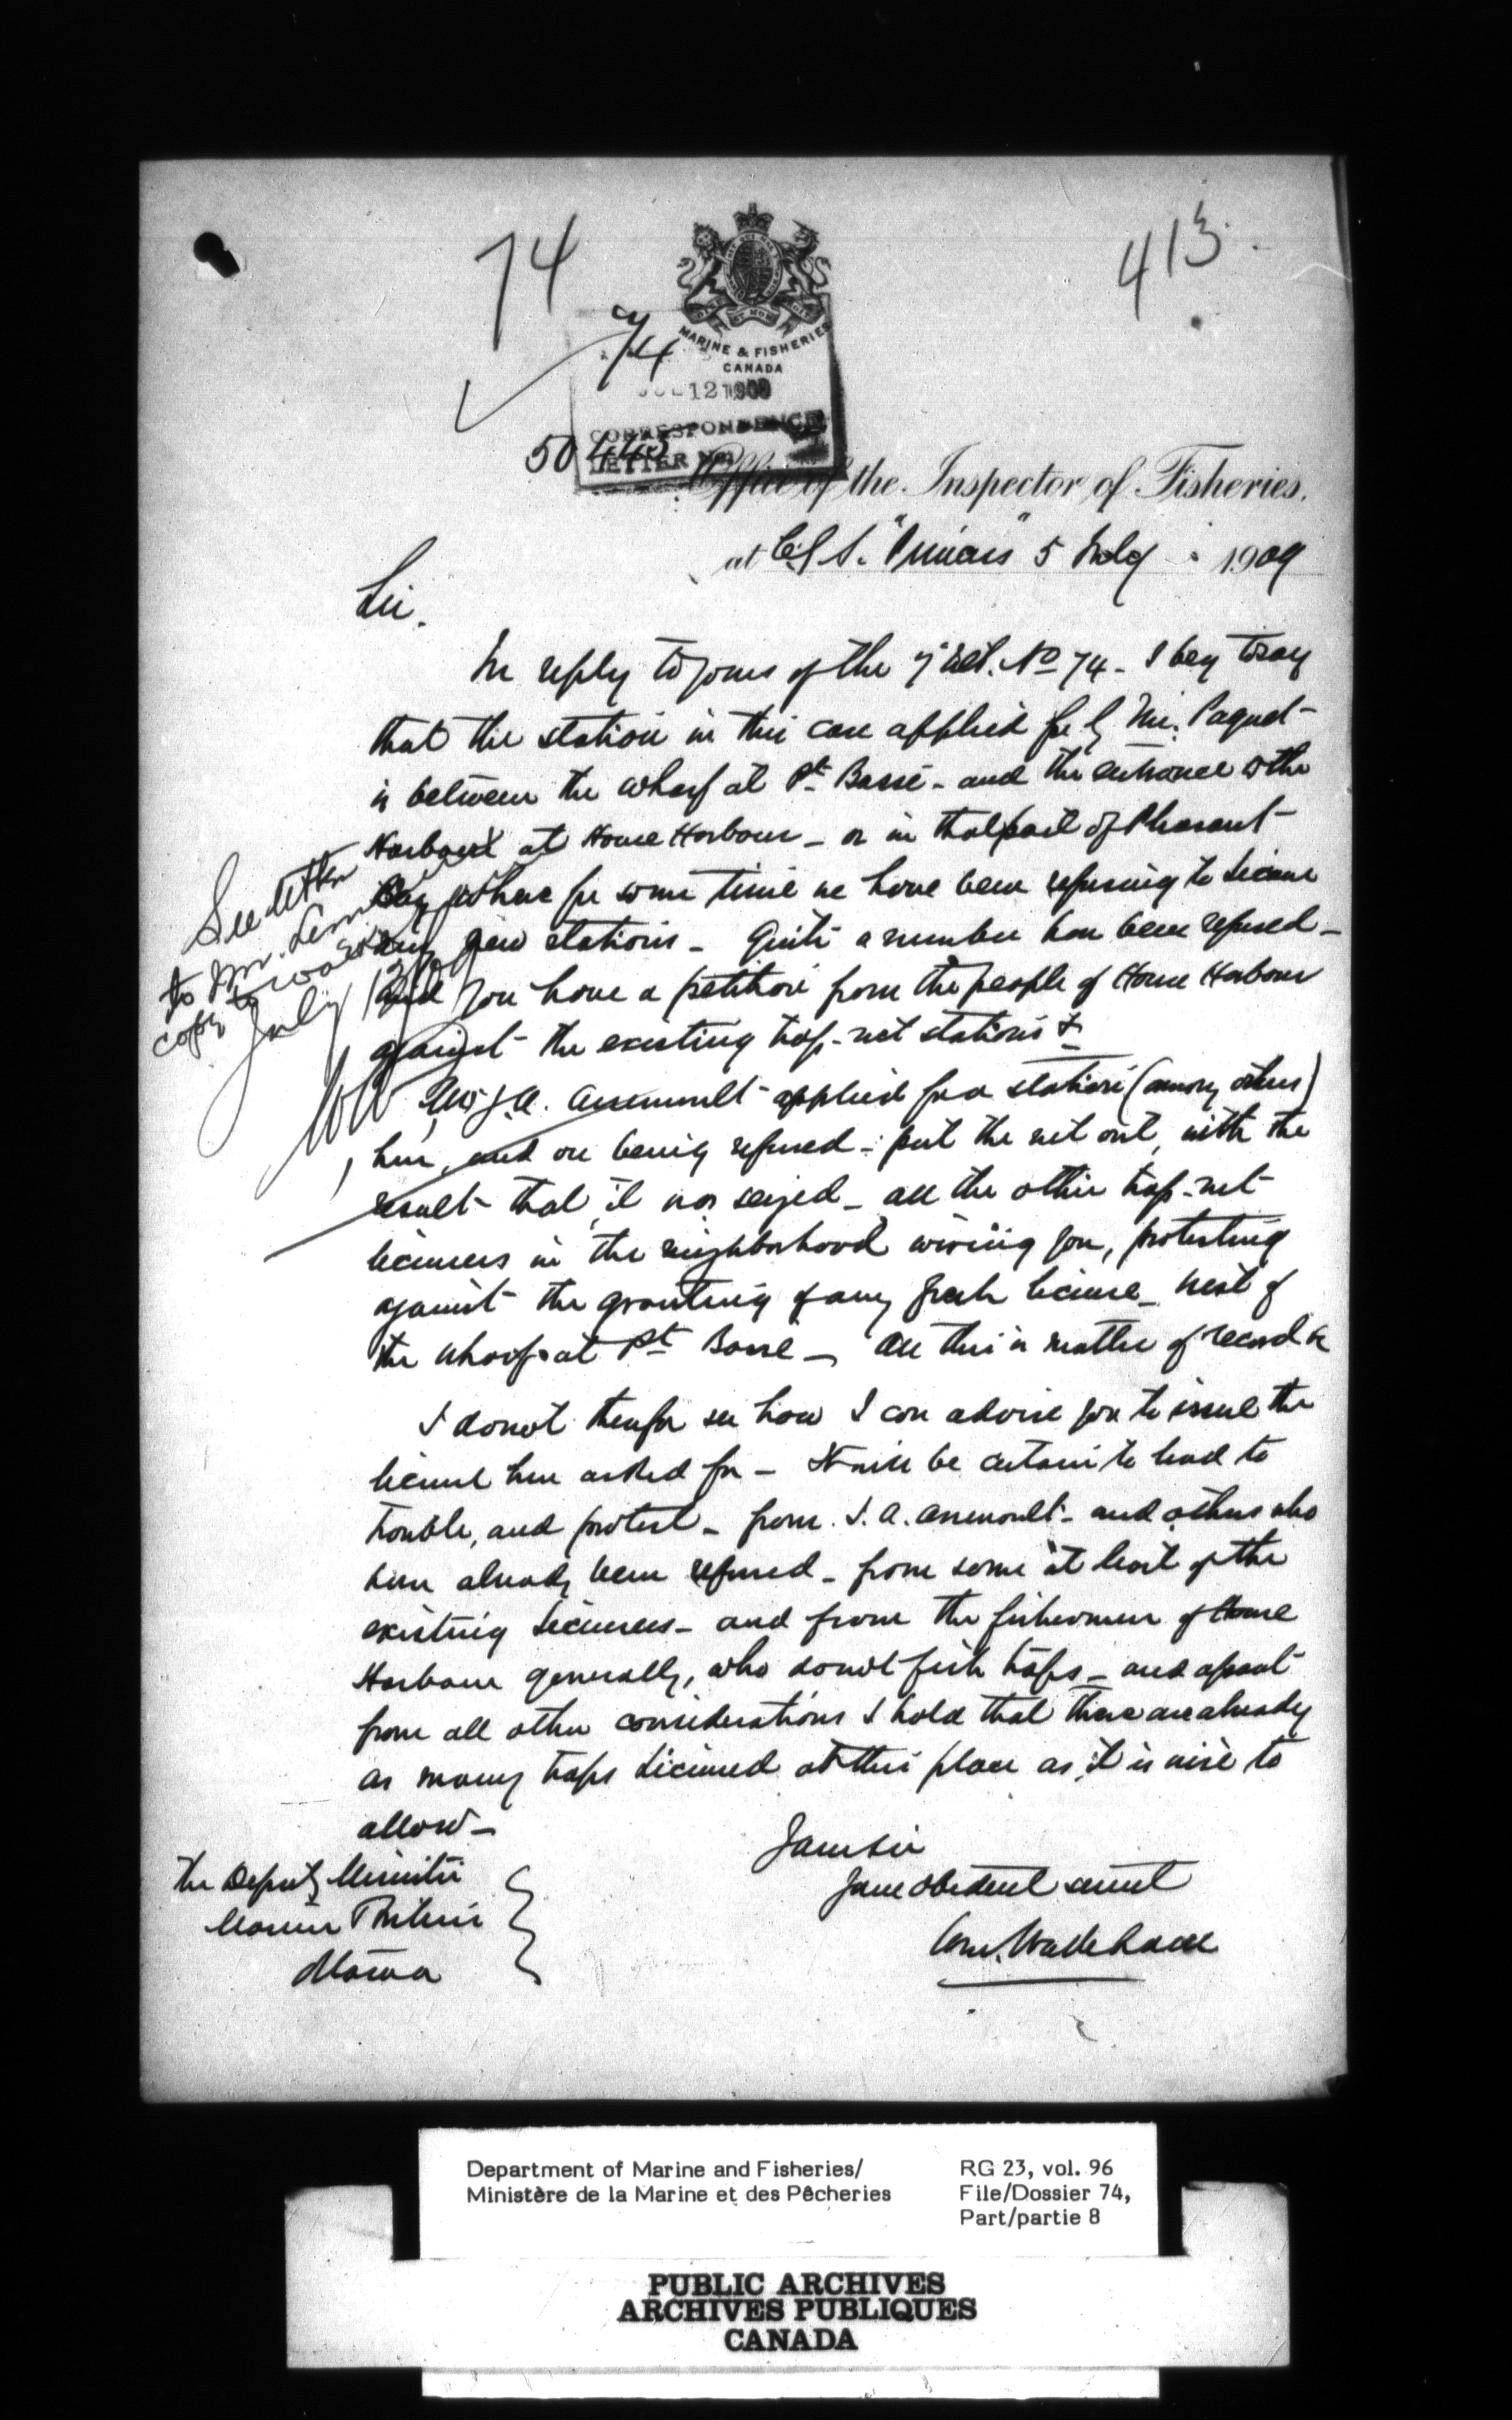 74
413
74
MARINE & FISHERIES
CANADA
JUL 12 1909
CORRESPONDENCE
50445
LETTER No.
Office of the Inspector of Fisheries.
at C.G.S. "Princess" 5 July 1909
Sir.
In reply to yours of the No 74 - I beg to say
that the station in this case applied for by Mr. Paquet
is between the wharf at Pt Basse - and the entrance to the
Harbour at House Harbour - or in that part of Pleasant
Bay where for some time we have been refusing to license
any new stations - Quite a number have been refused -
and you have a petition from the people of House Harbour
against the existing trap-net stations &
J.A. Arsenault applied for a station (among others)
here, and on being refused - put the net out, with the
result that it was seized - all the other trap-net
licensees in the neighborhood wiring you, protesting
against the granting of any fresh license - West of
the wharf at Pt Basse - All this is matter of record &
I do not therefor see how I can advise you to issue the
license here asked for - It will be certain to lead to
trouble, and protest - from J.A. Arsenault - and others who
have already been refused - from some at least of the
existing licensees - and from the fishermen of House
Harbour generally, who do not fish traps - and apart
from all other considerations I hold that there are already
as many traps licensed at this place as it is wise to
allow -
I am Sir
Your obedient servant
Wm. Wakeham
The Deputy Minister
Marine Fisheries
Ottawa
See letter
to Mr.
copy to
July 13/09
Department of Marine and Fisheries/
Ministère de la Marine et des Pêcheries
RG 23, vol. 96
File/Dossier 74,
Part/partie 8
PUBLIC ARCHIVES
ARCHIVES PUBLIQUES
CANADA